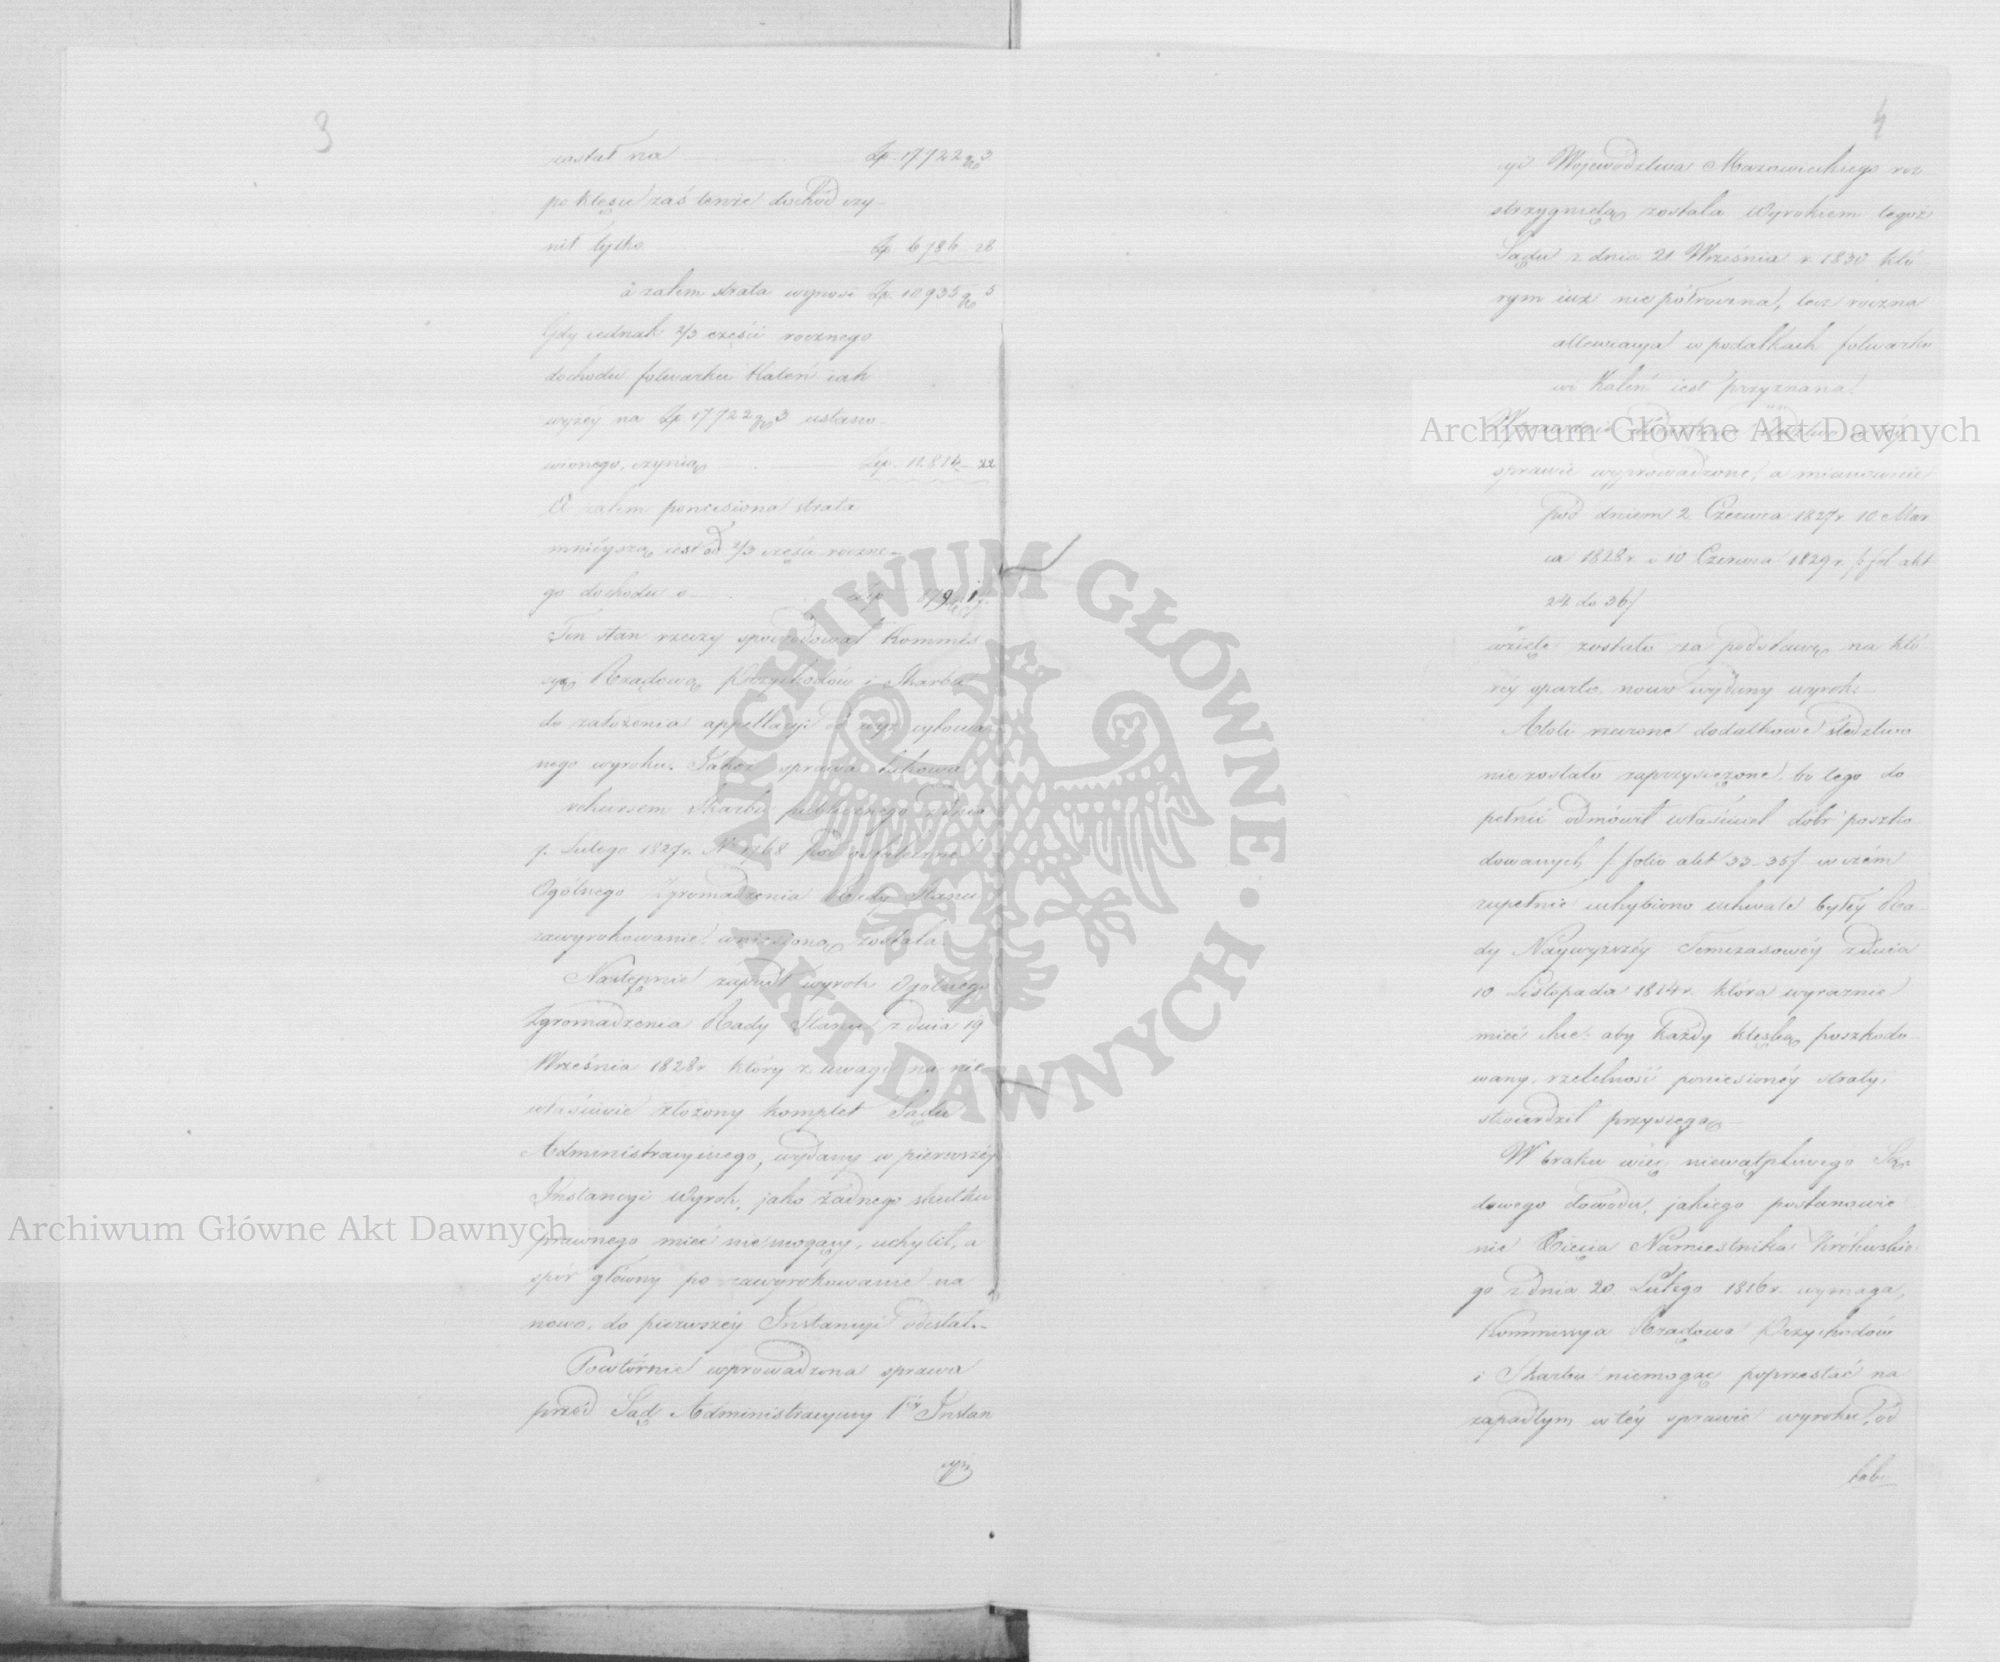 3
został na Zp. 17722 gr 3
po klęsce zaś tenże dochód czy-
nił tylko Zp. 6786 28
a zatem strata wynosi Zp. 10935 gr 5
Gdy iednak 2/3 części rocznego
dochodu folwarku Kaleń iak
wyżey na Zp 17722 gr 3 ustano-
wionego, czynią Złp. 11814 22
A zatem poniesiona strata
mnieysza iest od 2/3 części roczne-
go dochodu o złp
Ten stan rzeczy spowodował Kommis-
syą Rządową Przychodów i Skarbu
do założenia appellacyi od wyż cytowa-
nego wyroku. Jakoż sprawa takowa
rekursem Skarbu publicznego z dnia
7. Lutego 1827 r. N 1268 pod ostateczne
Ogólnego Zgromadzenia Rady Stanu
zawyrokowanie, wniesioną została.
Następnie zapadł wyrok Ogólnego
Zgromadzenia Rady Stanu z dnia 19
Września 1828 r. który z uwagi na nie-
właściwie złożony komplet Sądu
Administracyinego, wydany w pierwszéy
Instancyi Wyrok, jako żadnego skutku
prawnego mieć nie mogący, uchylił, a
spór główny po zawyrokowanie na
nowo, do pierwszéy Instancyi odesłał.-
Powtórnie wprowadzona sprawa
przed Sąd Administracyiny 1éy Instan
cyi
4
cyi Województwa Mazowieckiego roz-
strzygnietą została Wyrokiem tegoż
Sądu z dnia 21 Września r. 1830 któ
rym iuż nie półroczna, lecz roczna
allewiacya w podatkach folwarko
wi Kaleń iest przyznana.
sprawie wyprowadzone, a mianowicie
pod dniem 2 Czerwca 1827 r. 10 Mar
ca 1828 r. i 10 Czerwca 1829 r. /: fol akt
24 do 36/
wzięte zostało za podstawę na któ
réy oparto nowo wydany wyrok.
Atoli rzeczone dodatkowe śledztwo
nie zostało zaprzysiężone, bo tego do
pełnić odmówił właściciel dóbr poszko-
dowanych /: folio akt 33-35/ w czém
zupełnie uchybiono uchwale byłéy Ra-
dy Naywyższéy Temczasowéy z dnia
10 Listopada 1814 r. która wyraźnie
mieć chce: aby każdy klęską poszkodo-
wany, rzetelność poniesionéy straty,
stwierdził przysięgą.
W braku więc niewątpliwego Są-
dowego dowodu, jakiego postanowie
nie Xięcia Namiestnika Królewskie
go z dnia 20 Lutego 1816 r. wymaga,
Kommissya Rządowa Przychodów
i Skarbu niemogąc poprzestać na
zapadłym w téy sprawie wyroku, od
Archiwum Główne Akt Dawnych
Archiwum Główne Akt Dawnych
ARCHIWUM GŁÓWNE AKT DAWNYCH